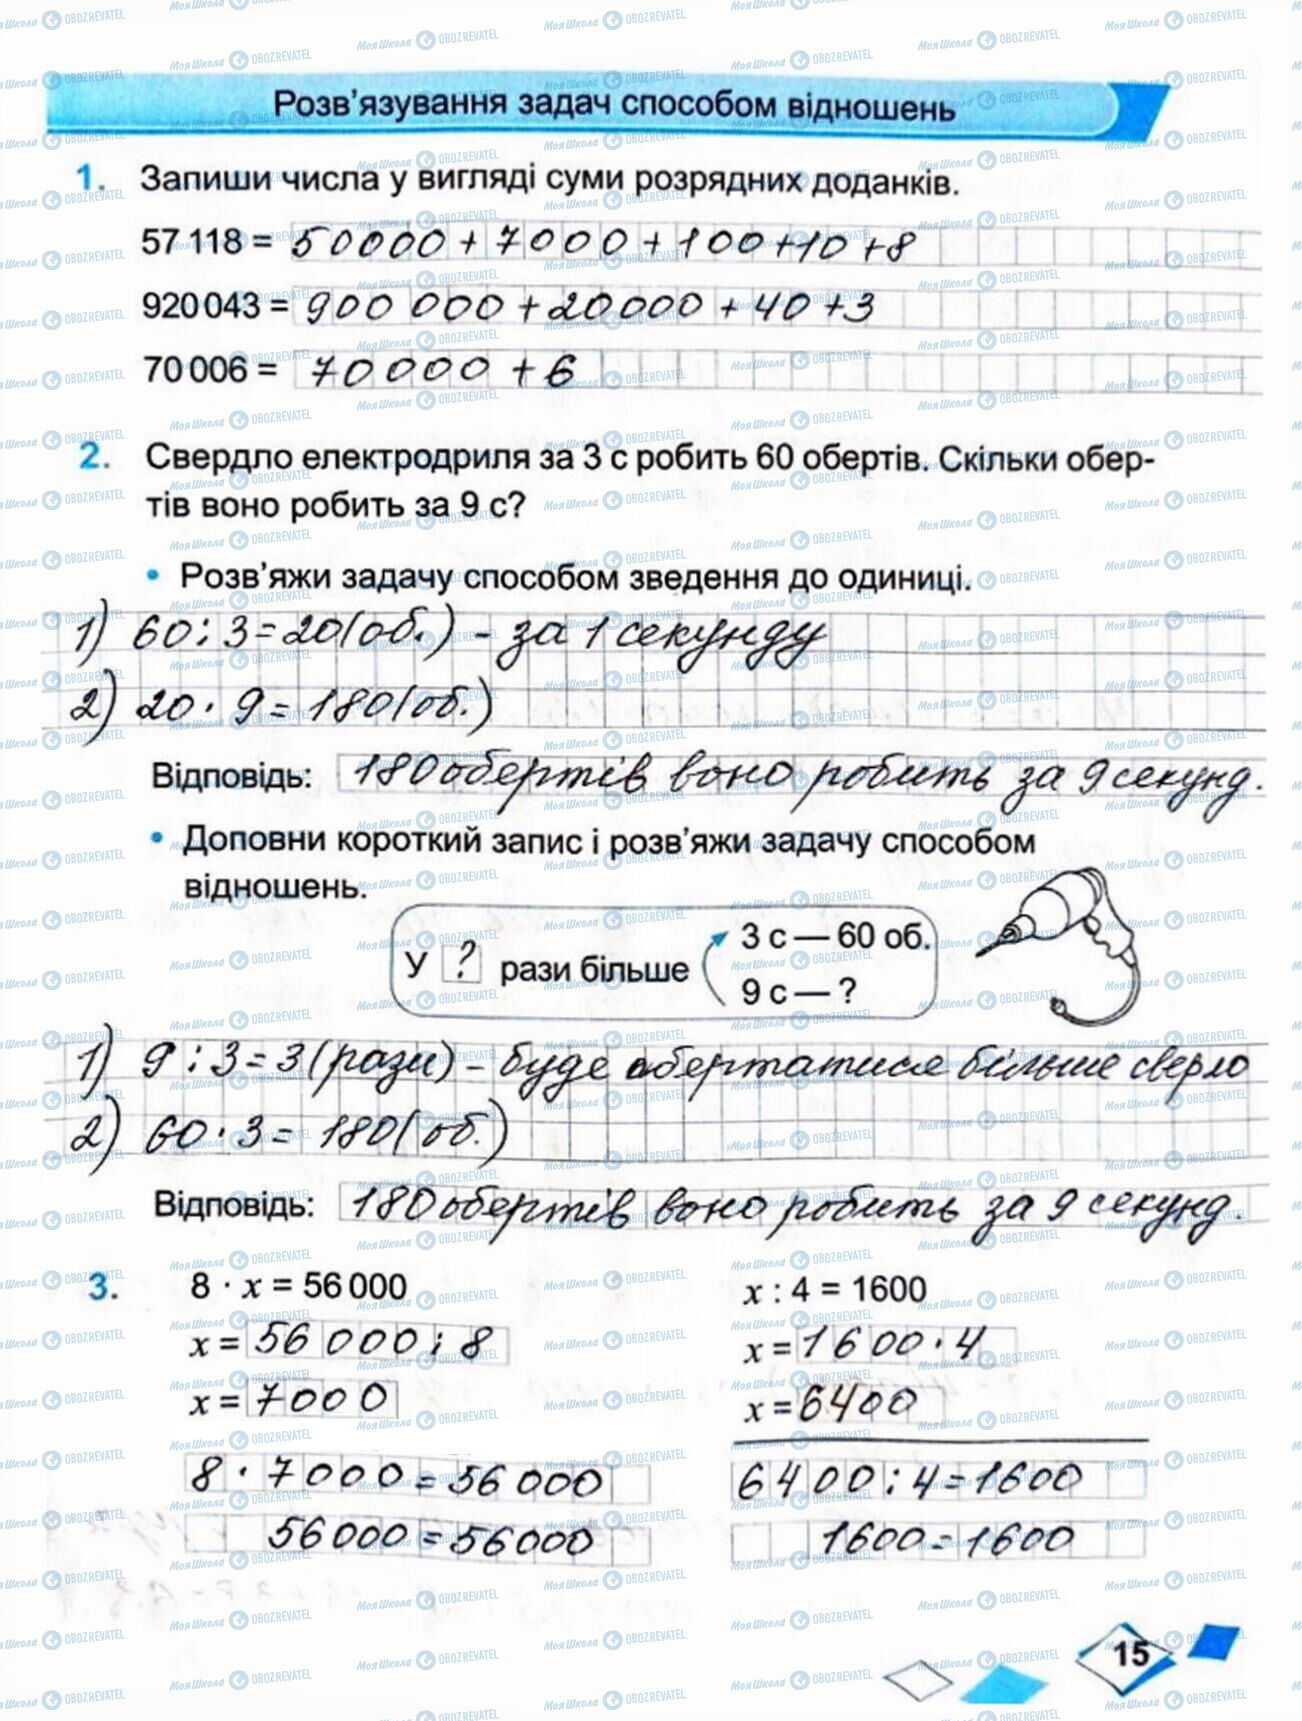 Розв'язування задач способом відношень
1. Запиши числа у вигляді суми розрядних доданків.
57 118 = 50000 + 7000 + 100 + 10 + 8
920 043 = 900 000 + 20000 + 40 + 3
70 006 = 70000 + 6
2. Свердло електродриля за 3 с робить 60 обертів. Скільки обер-
тів воно робить за 9 с?
• Розв'яжи задачу способом зведення до одиниці.
1) 60 : 3 = 20 (об.) - за 1 секунду
2) 20 · 9 = 180 (об.)
Відповідь: 180 обертів воно робить за 9 секунд.
• Доповни короткий запис і розв'яжи задачу способом
відношень.
У ? рази більше
3 с — 60 об.
9 с — ?
1) 9 : 3 = 3 (рази) - буде обертатися більше сверло
2) 60 · 3 = 180 (об.)
Відповідь: 180 обертів воно робить за 9 секунд.
3. 8 · x = 56 000
x = 56 000 : 8
x = 7000
8 · 7000 = 56 000
56 000 = 56 000
x : 4 = 1600
x = 1600 · 4
x = 6400
6400 : 4 = 1600
1600 = 1600
15
МояШкола OBOZREVATEL